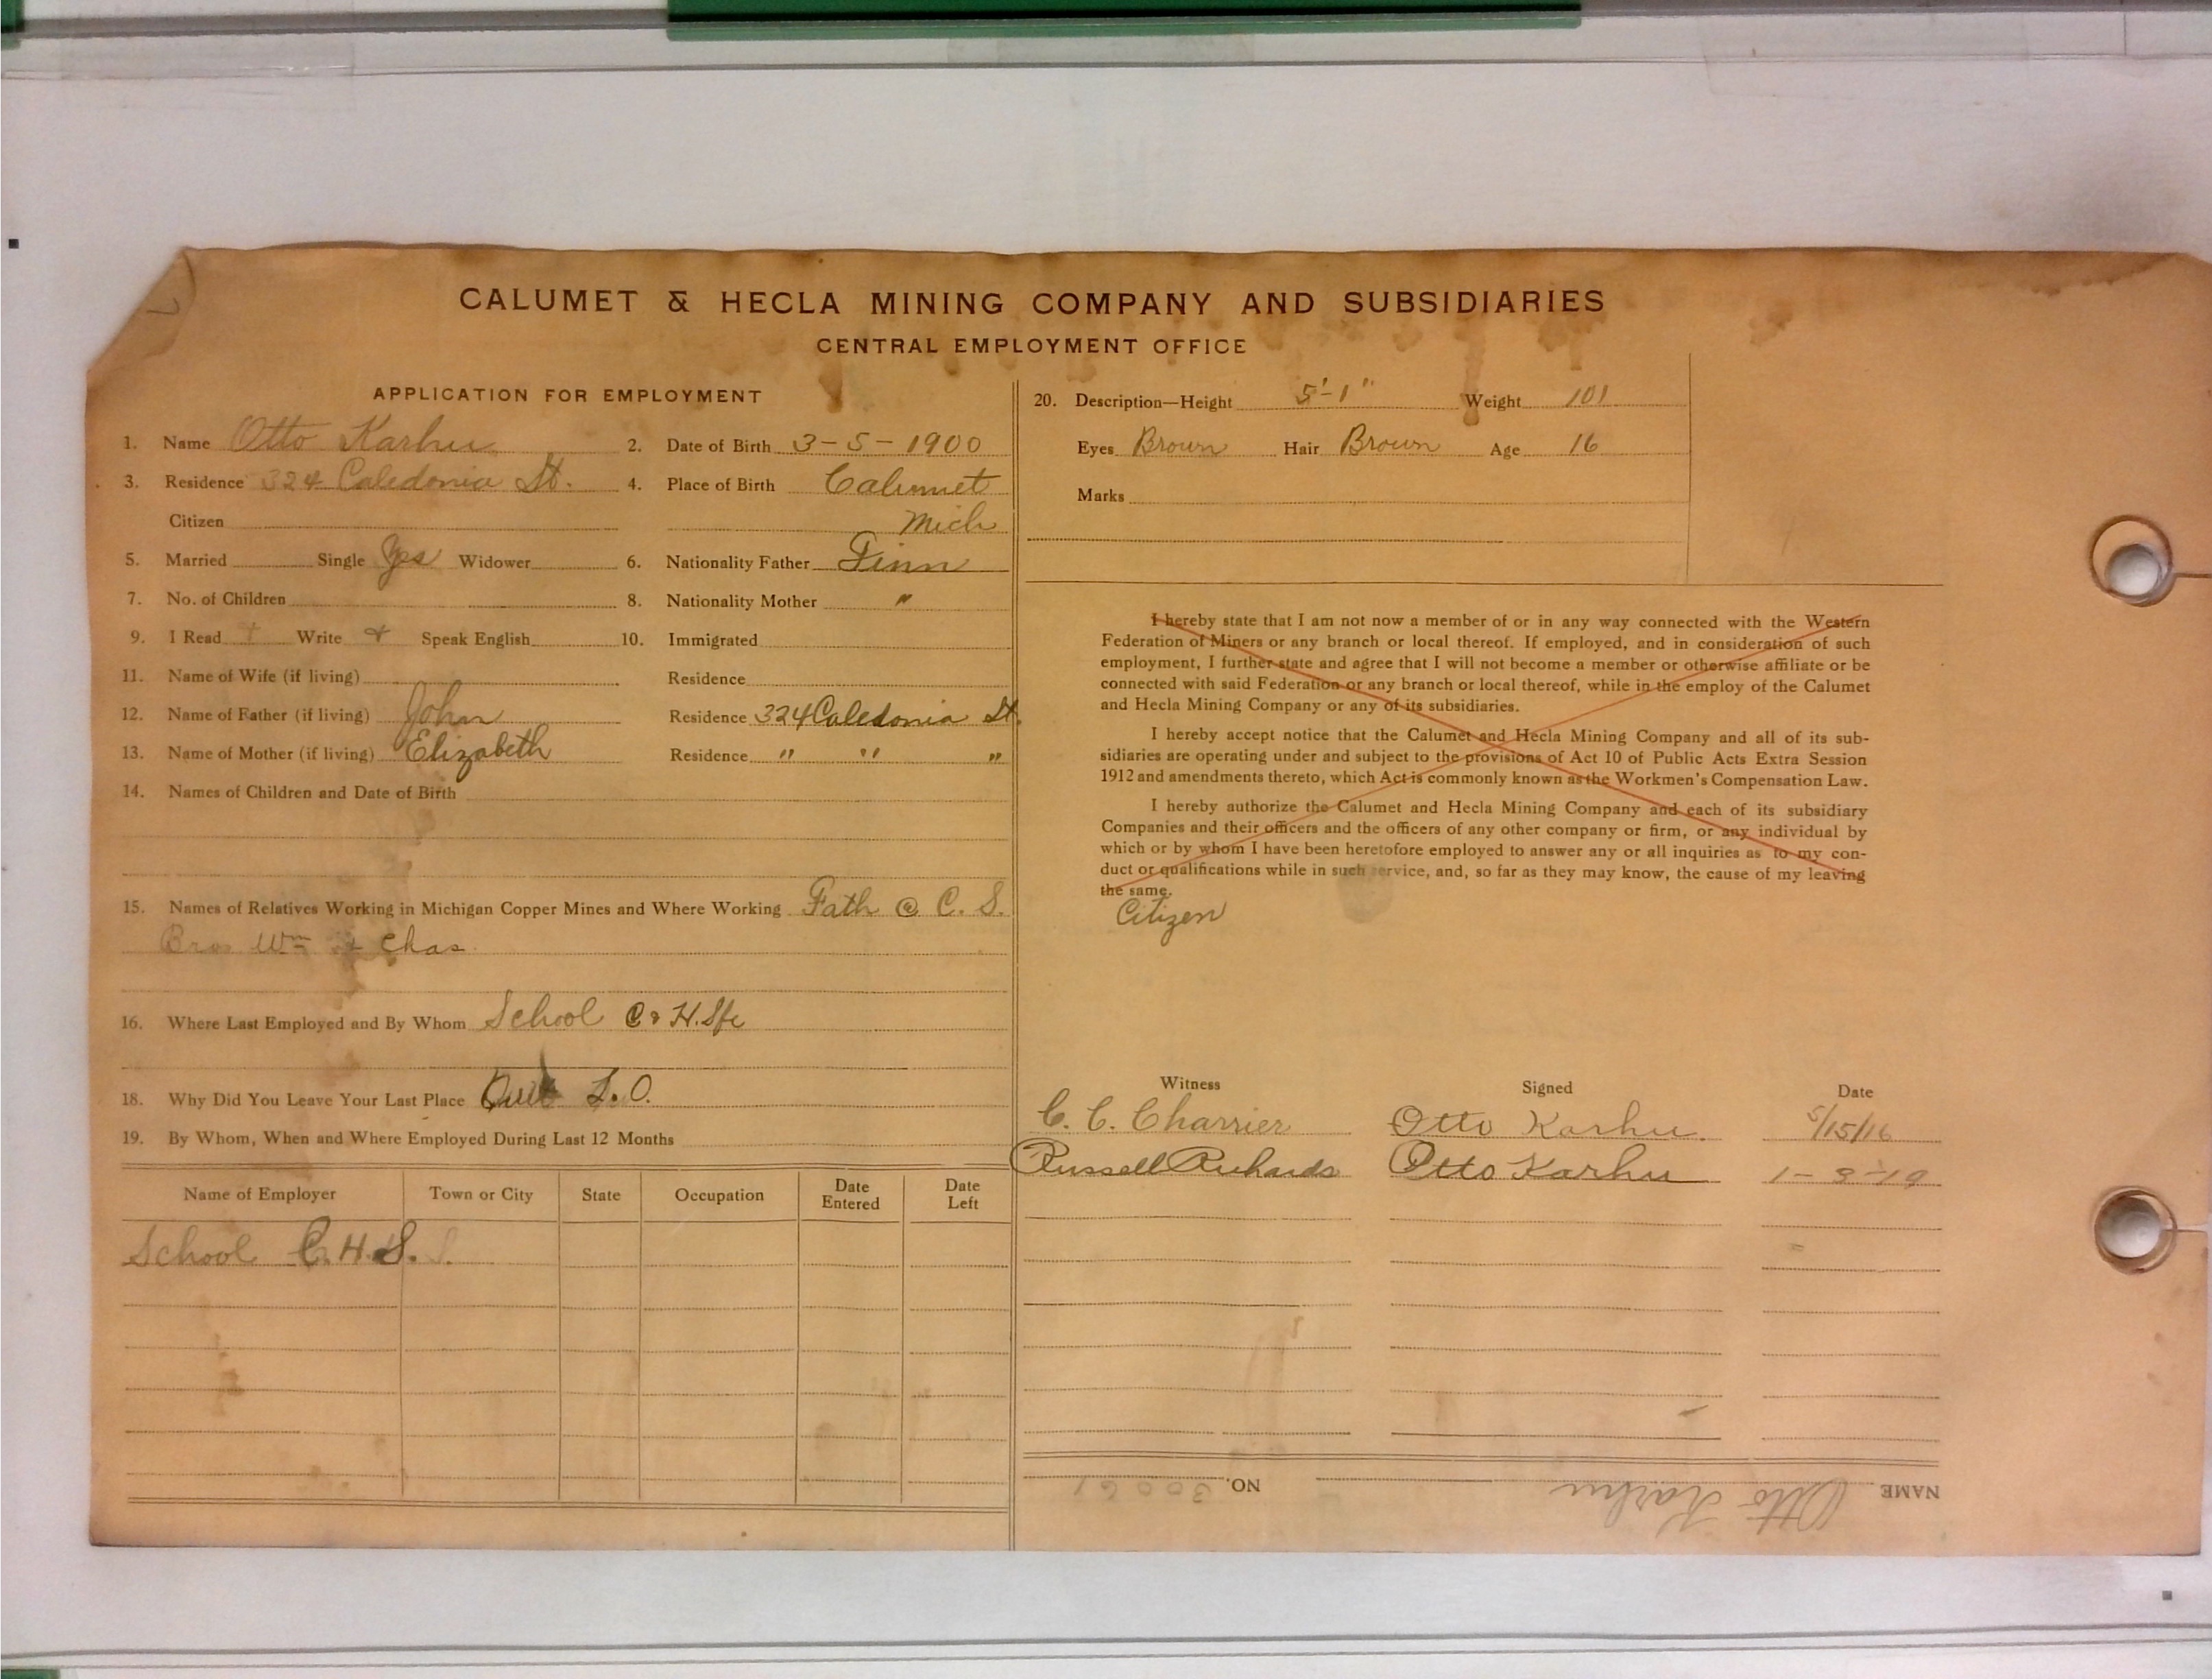 CALUMET & HECLA MINING COMPANY AND SUBSIDIARIES
CENTRAL EMPLOYMENT OFFICE
APPLICATION FOR EMPLOYMENT
1. Name Otto Karhu 2. Date of Birth 3-5-1900
3. Residence 324 Caledonia St. 4. Place of Birth Calumet
Citizen Mich
5. Married Single Yes Widower 6. Nationality Father Finn
7. No. of Children 8. Nationality Mother "
9. I Read + Write + Speak English 10. Immigrated
11. Name of Wife (if living) Residence
12. Name of Father (if living) John Residence 324 Caledonia St.
13. Name of Mother (if living) Elizabeth Residence " " "
14. Names of Children and Date of Birth
15. Names of Relatives Working in Michigan Copper Mines and Where Working Fath @ C. S.
Bros Wm + Chas
16. Where Last Employed and By Whom School C & H.
18. Why Did You Leave Your Last Place Quit L.O.
19. By Whom, When and Where Employed During Last 12 Months
Name of Employer Town or City State Occupation Date Entered Date Left
School C.H.S.
20. Description—Height 5'-1" Weight 101
Eyes Brown Hair Brown Age 16
Marks
I hereby state that I am not now a member of or in any way connected with the Western
Federation of Miners or any branch or local thereof. If employed, and in consideration of such
employment, I further state and agree that I will not become a member or otherwise affiliate or be
connected with said Federation or any branch or local thereof, while in the employ of the Calumet
and Hecla Mining Company or any of its subsidiaries.
I hereby accept notice that the Calumet and Hecla Mining Company and all of its sub-
sidiaries are operating under and subject to the provisions of Act 10 of Public Acts Extra Session
1912 and amendments thereto, which Act is commonly known as the Workmen's Compensation Law.
I hereby authorize the Calumet and Hecla Mining Company and each of its subsidiary
Companies and their officers and the officers of any other company or firm, or any individual by
which or by whom I have been heretofore employed to answer any or all inquiries as to my con-
duct or qualifications while in such service, and, so far as they may know, the cause of my leaving
the same.
Citizen
Witness Signed Date
C. C. Charrier Otto Karhu. 5/15/16
Russell Richards Otto Karhu 1-3-19
NAME Otto Karhu NO. 30061